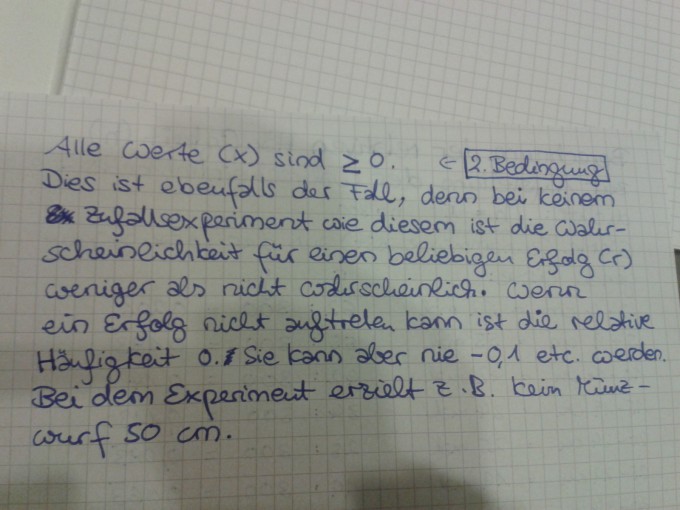 Alle Werte (x) sind ≥ 0. ← 2. Bedingung
Dies ist ebenfalls der Fall, denn bei keinem
Zufallsexperiment wie diesem ist die Wahr-
scheinlichkeit für einen beliebigen Erfolg (r)
weniger als nicht wahrscheinlich. Wenn
ein Erfolg nicht auftreten kann ist die relative
Häufigkeit 0. Sie kann aber nie -0,1 etc. werden.
Bei dem Experiment erzielt z.B. kein Münz-
wurf 50 cm.